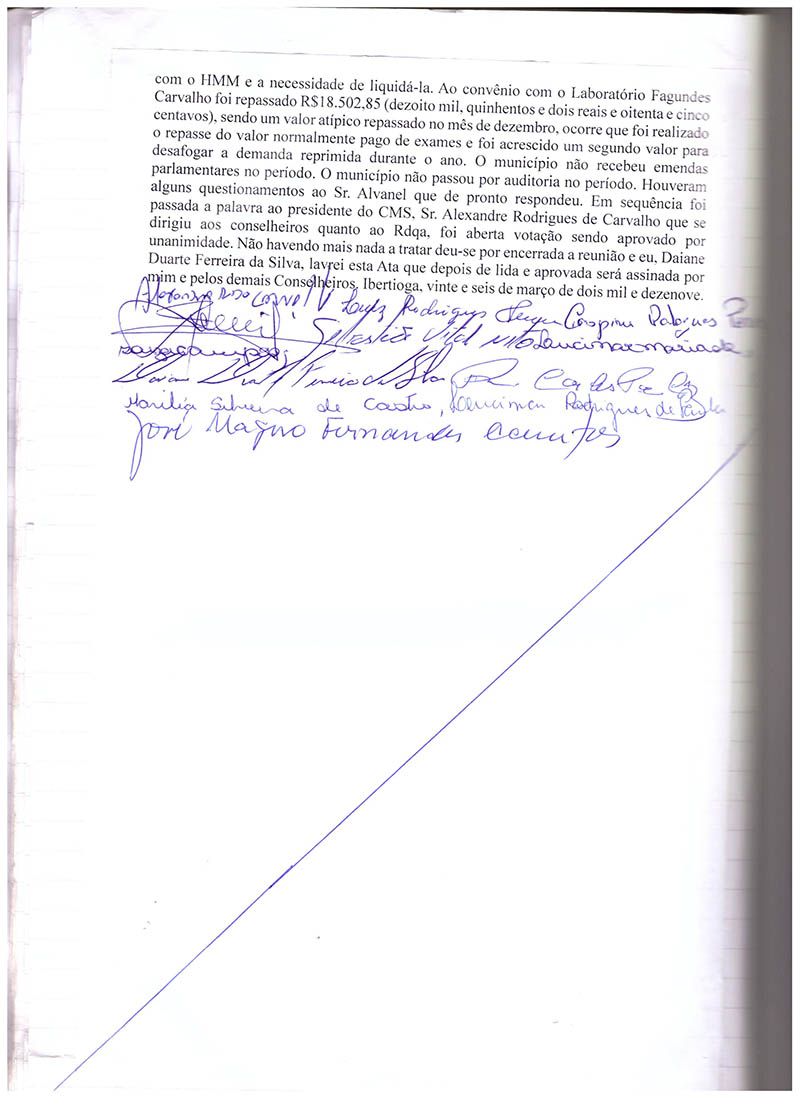 com o HMM e a necessidade de liquidá-la. Ao convênio com o Laboratório Fagundes
Carvalho foi repassado R$18.502,85 (dezoito mil, quinhentos e dois reais e oitenta e cinco
centavos), sendo um valor atípico repassado no mês de dezembro, ocorre que foi realizado
o repasse do valor normalmente pago de exames e foi acrescido um segundo valor para
desafogar a demanda reprimida durante o ano. O município não recebeu emendas
parlamentares no período. O município não passou por auditoria no período. Houveram
alguns questionamentos ao Sr. Alvanel que de pronto respondeu. Em sequência foi
passada a palavra ao presidente do CMS, Sr. Alexandre Rodrigues de Carvalho que se
dirigiu aos conselheiros quanto ao Rdqa, foi aberta votação sendo aprovado por
unanimidade. Não havendo mais nada a tratar deu-se por encerrada a reunião e eu, Daiane
Duarte Ferreira da Silva, lavrei esta Ata que depois de lida e aprovada será assinada por
mim e pelos demais Conselheiros. Ibertioga, vinte e seis de março de dois mil e dezenove.
Luiz Rodrigues
Vital
Marilia Silveira de Castro, Rodrigues de Paula
José Magno Fernandes Campos